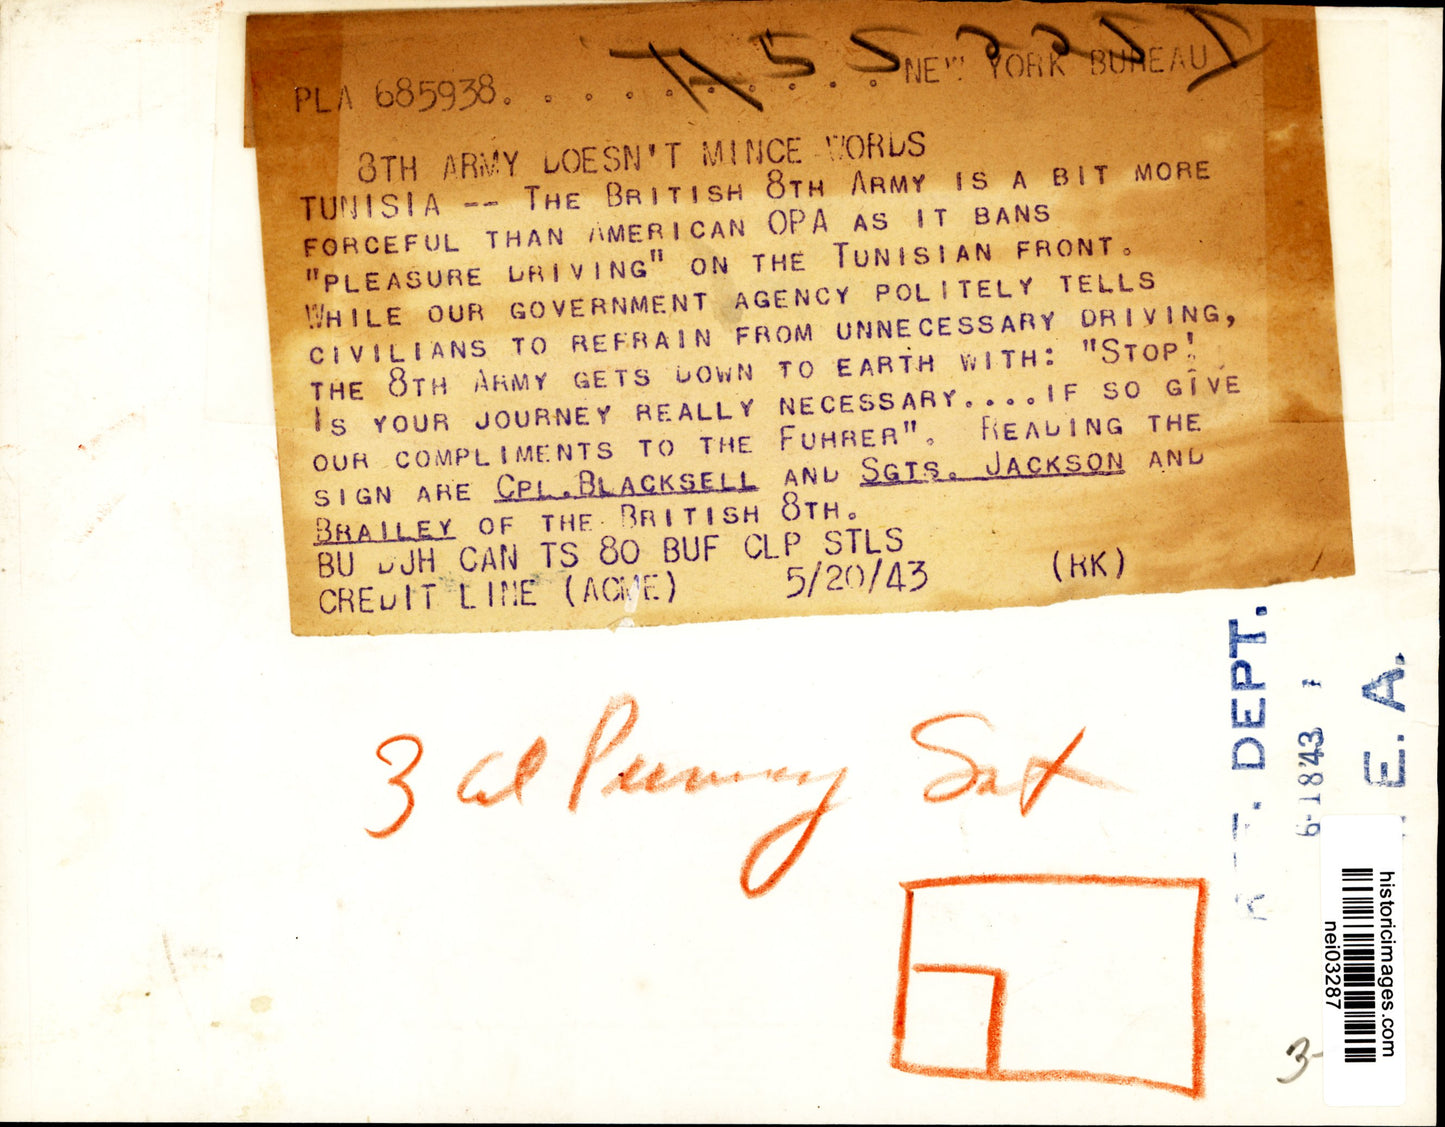 PLA 685938. . . . . . . . . . . NEW YORK BUREAU
8TH ARMY DOESN'T MINCE WORDS
TUNISIA -- THE BRITISH 8TH ARMY IS A BIT MORE
FORCEFUL THAN AMERICAN OPA AS IT BANS
"PLEASURE DRIVING" ON THE TUNISIAN FRONT.
WHILE OUR GOVERNMENT AGENCY POLITELY TELLS
CIVILIANS TO REFRAIN FROM UNNECESSARY DRIVING,
THE 8TH ARMY GETS DOWN TO EARTH WITH: "STOP!
IS YOUR JOURNEY REALLY NECESSARY....IF SO GIVE
OUR COMPLIMENTS TO THE FUHRER". READING THE
SIGN ARE CPL.BLACKSELL AND SGTS. JACKSON AND
BRAILEY OF THE BRITISH 8TH.
BU DJH CAN TS 80 BUF CLP STLS
CREDIT LINE (ACME) 5/20/43 (RK)
3 Col Sat
DEPT.
6-18'43
E. A.
historicimages.com
nei03287
3-